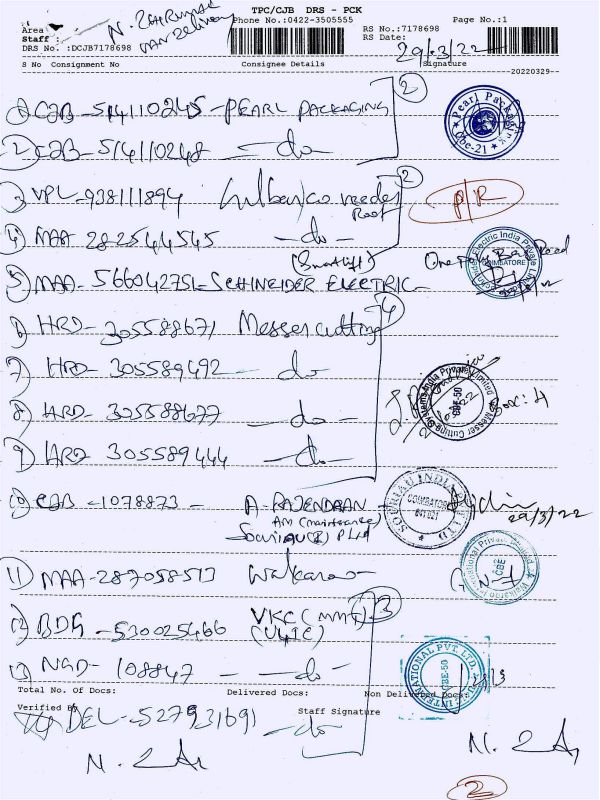 TPC/CJB DRS - PCK
Phone No.:0422-3505555
Page No.:1
Area
Staff :
DRS No. :DCJB7178698
RS No.:7178698
RS Date:
29/3/22
S No Consignment No
Consignee Details
Signature
20220329--
1) CJB-514110245-PEARL PACKAGING
2) CJB-514110248 -do-
2
Pearl Packaging
Cbe-21
3) VPL-938111894
Roof
P/R
4) MAA 282544545 -do-
2
(Smartlift)
5) MAA-566042751-SCHNEIDER ELECTRIC-
Electric India Private
COIMBATORE
6) HRD-305588671 Messer cutting
4
7) HRD-305589492 -do-
8) HRD-305588677 -do-
Messer Cutting Systems India Private Limited
CBE-50
Box: 4
9) HRD 305589444 -do-
10) CJB-1078873- A-RAJENDRAN
AM (maintenance)
COIMBATORE
641021
29/3/22
11) MAA-287058513 Walkaroo-
Walkaroo International Private Limited
CBE
12) BDG-530025466 VKC (MMT)
3
13) NGD-108847 - -do-
INTERNATIONAL PVT. LTD.
CBE-50
Total No. Of Docs:
Delivered Docs:
Non Delivered Docs:
Verified By
Staff Signature
14) DEL-527931691 -do-
2